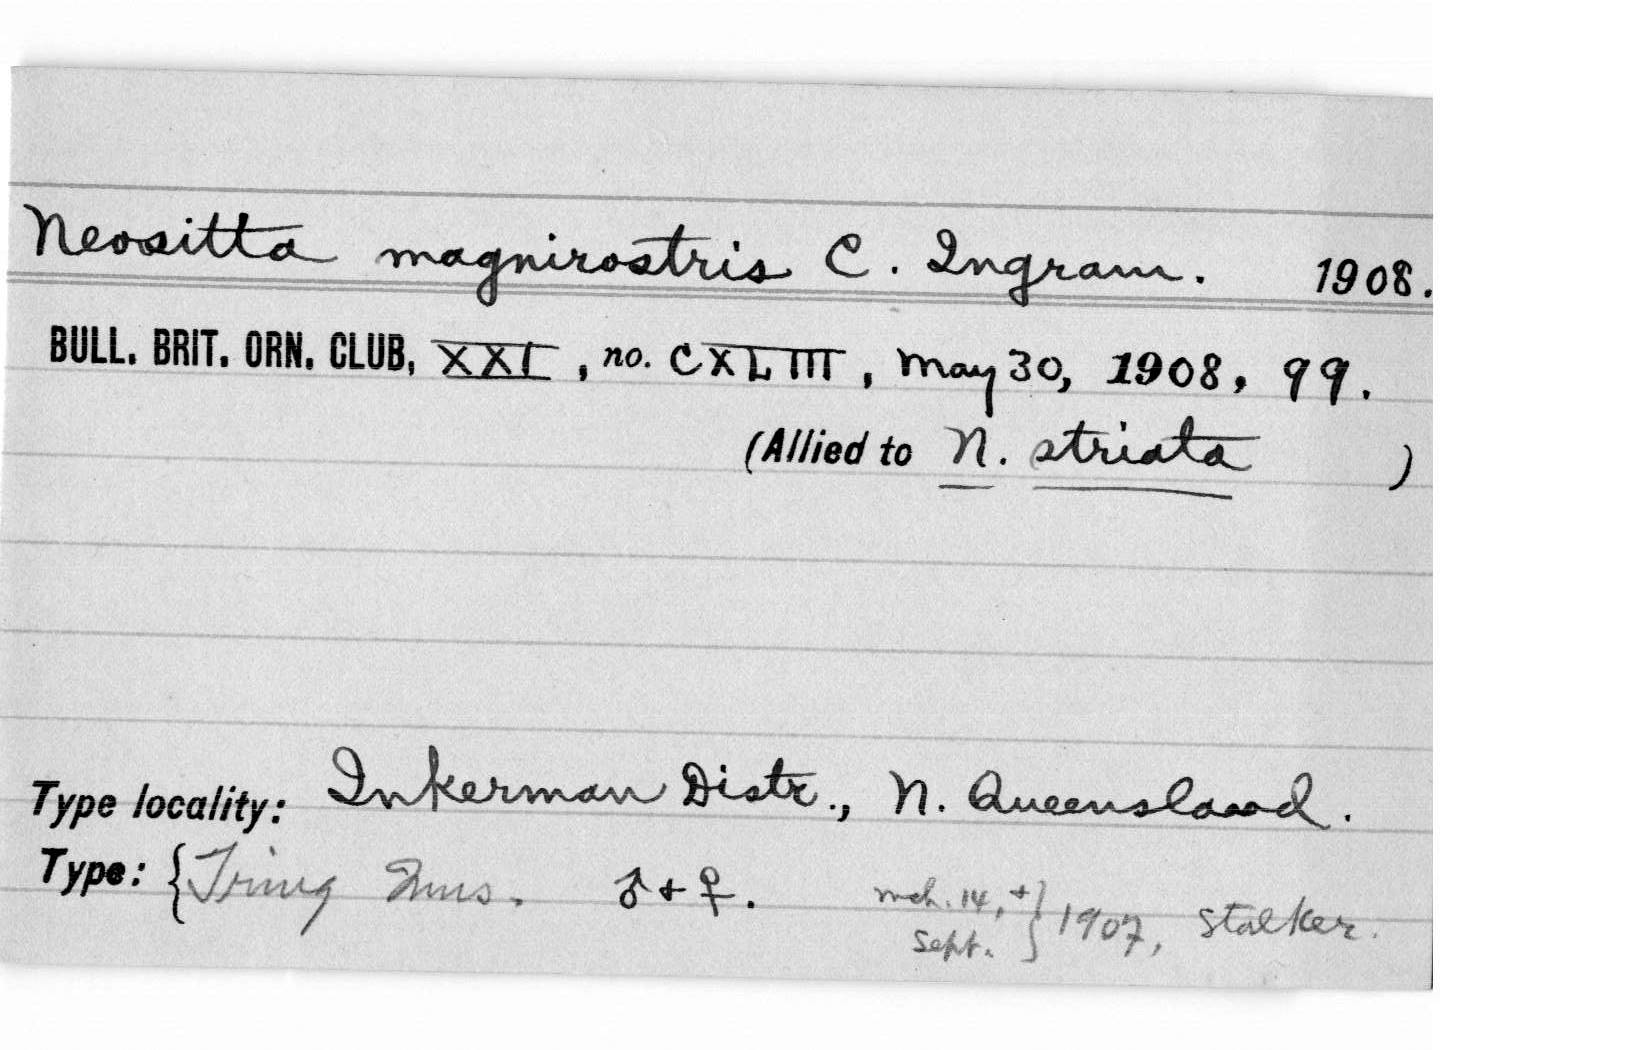 Neositta magnirostris C. Ingram. 1908.
BULL. BRIT. ORN. CLUB, XXI, no. CXLIII, May 30, 1908, 99.
(Allied to N. striata )
Type locality: Inkerman Distr., N. Queensland.
Type: {Tring Mus. ♂ + ♀. mch. 14, + } 1907, Stalker.
Sept.